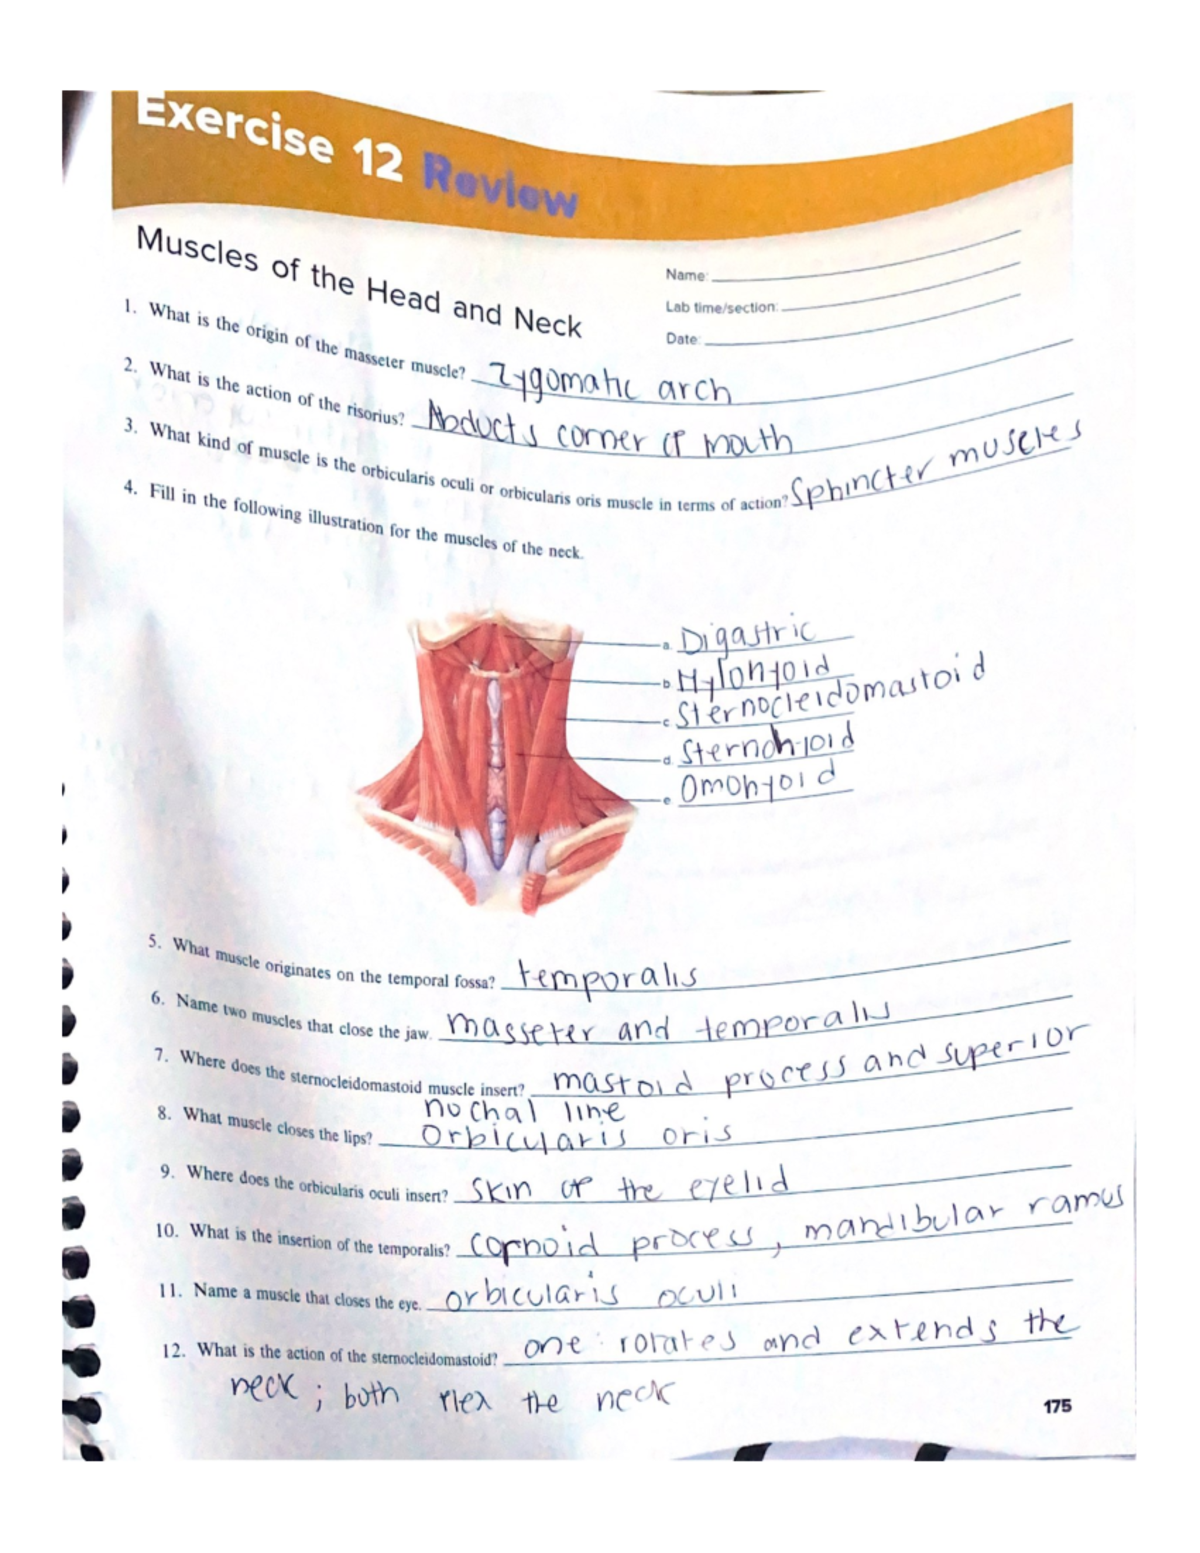 Exercise 12 Review
Muscles of the Head and Neck
Name:
Lab time/section:
Date:
1. What is the origin of the masseter muscle? Zygomatic arch
2. What is the action of the risorius? Abducts corner of mouth
3. What kind of muscle is the orbicularis oculi or orbicularis oris muscle in terms of action? Sphincter muscles
4. Fill in the following illustration for the muscles of the neck.
a. Digastric
b. Mylohyoid
c. Sternocleidomastoid
d. Sternohyoid
e. Omohyoid
5. What muscle originates on the temporal fossa? temporalis
6. Name two muscles that close the jaw. masseter and temporalis
7. Where does the sternocleidomastoid muscle insert? mastoid process and superior
nuchal line
8. What muscle closes the lips? Orbicularis oris
9. Where does the orbicularis oculi insert? skin of the eyelid
10. What is the insertion of the temporalis? cornoid process, mandibular ramus
11. Name a muscle that closes the eye. orbicularis oculi
12. What is the action of the sternocleidomastoid? one: rotates and extends the
neck; both flex the neck
175